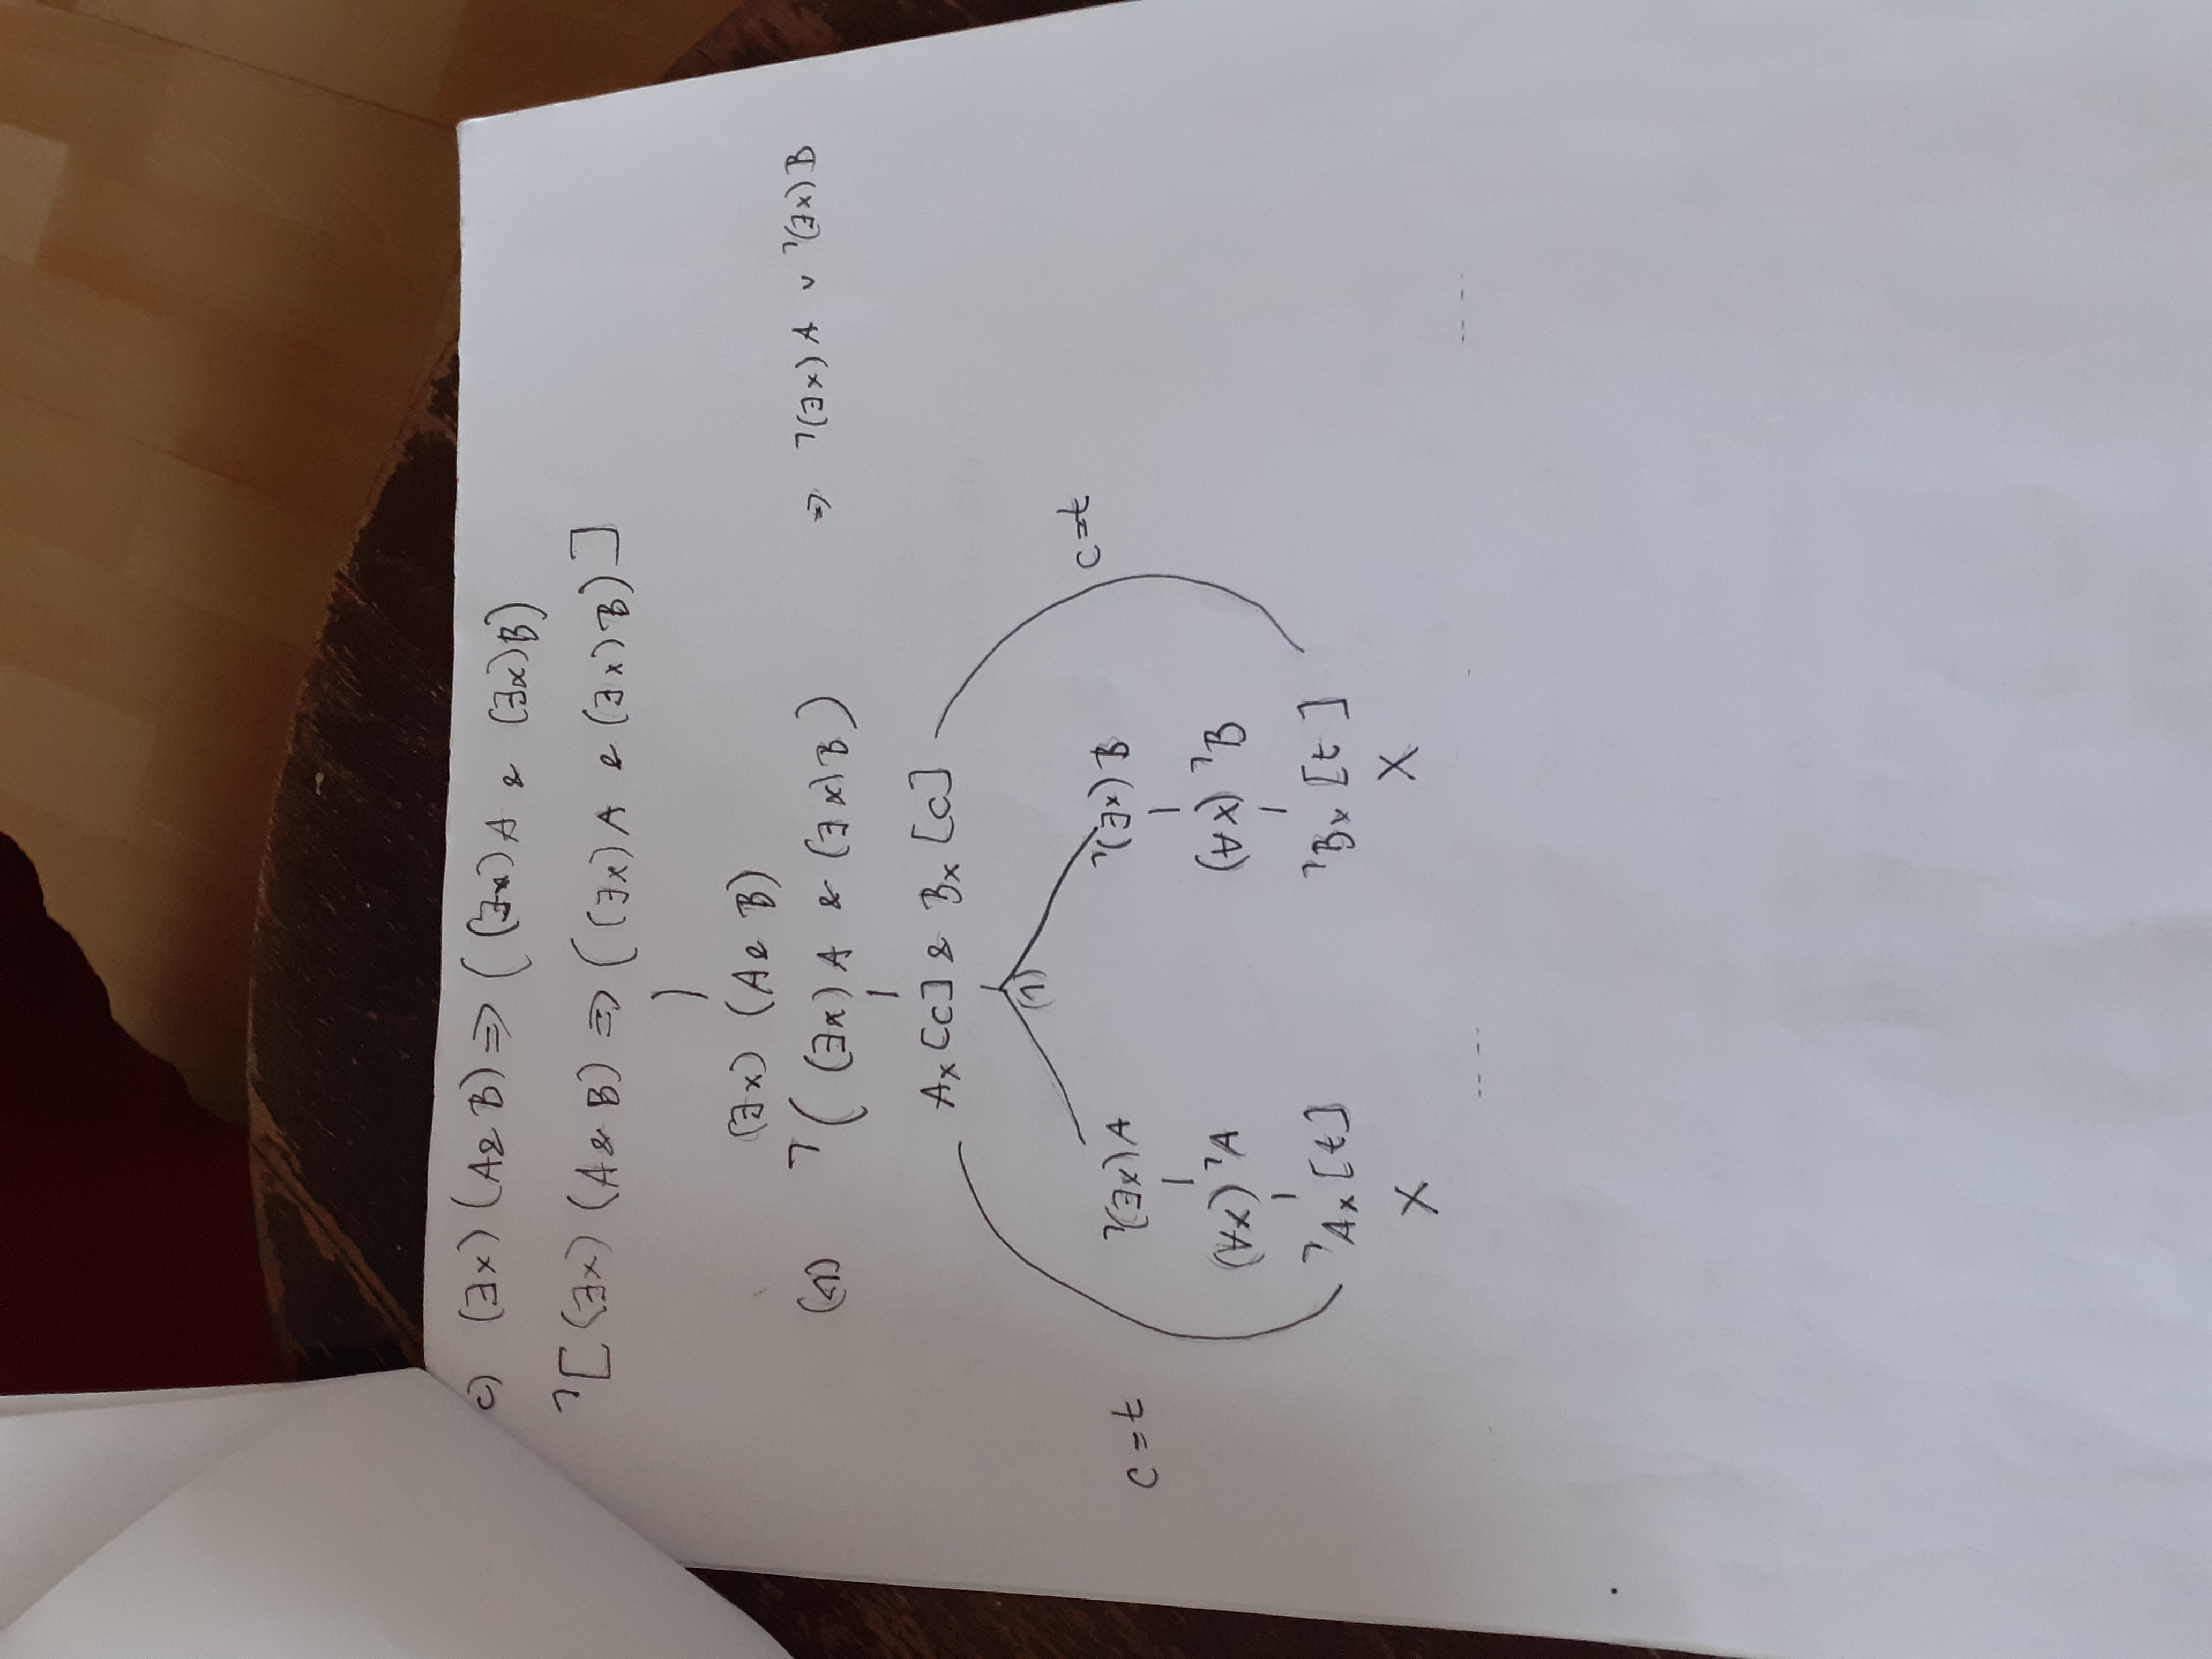 c) (∃x) (A & B) ⇒ ( (∃x) A & (∃x) B)
¬[ (∃x) (A & B) ⇒ ( (∃x) A & (∃x) B) ]
(∃x) (A & B)
(1) ¬( (∃x) A & (∃x) B ) ⇒ ¬(∃x) A ∨ ¬(∃x) B
Ax [c] & Bx [c]
(1)
c=t
¬(∃x) A ¬(∃x) B
c=t
(∀x) ¬A (∀x) ¬B
¬Ax [t] ¬Bx [t]
X X